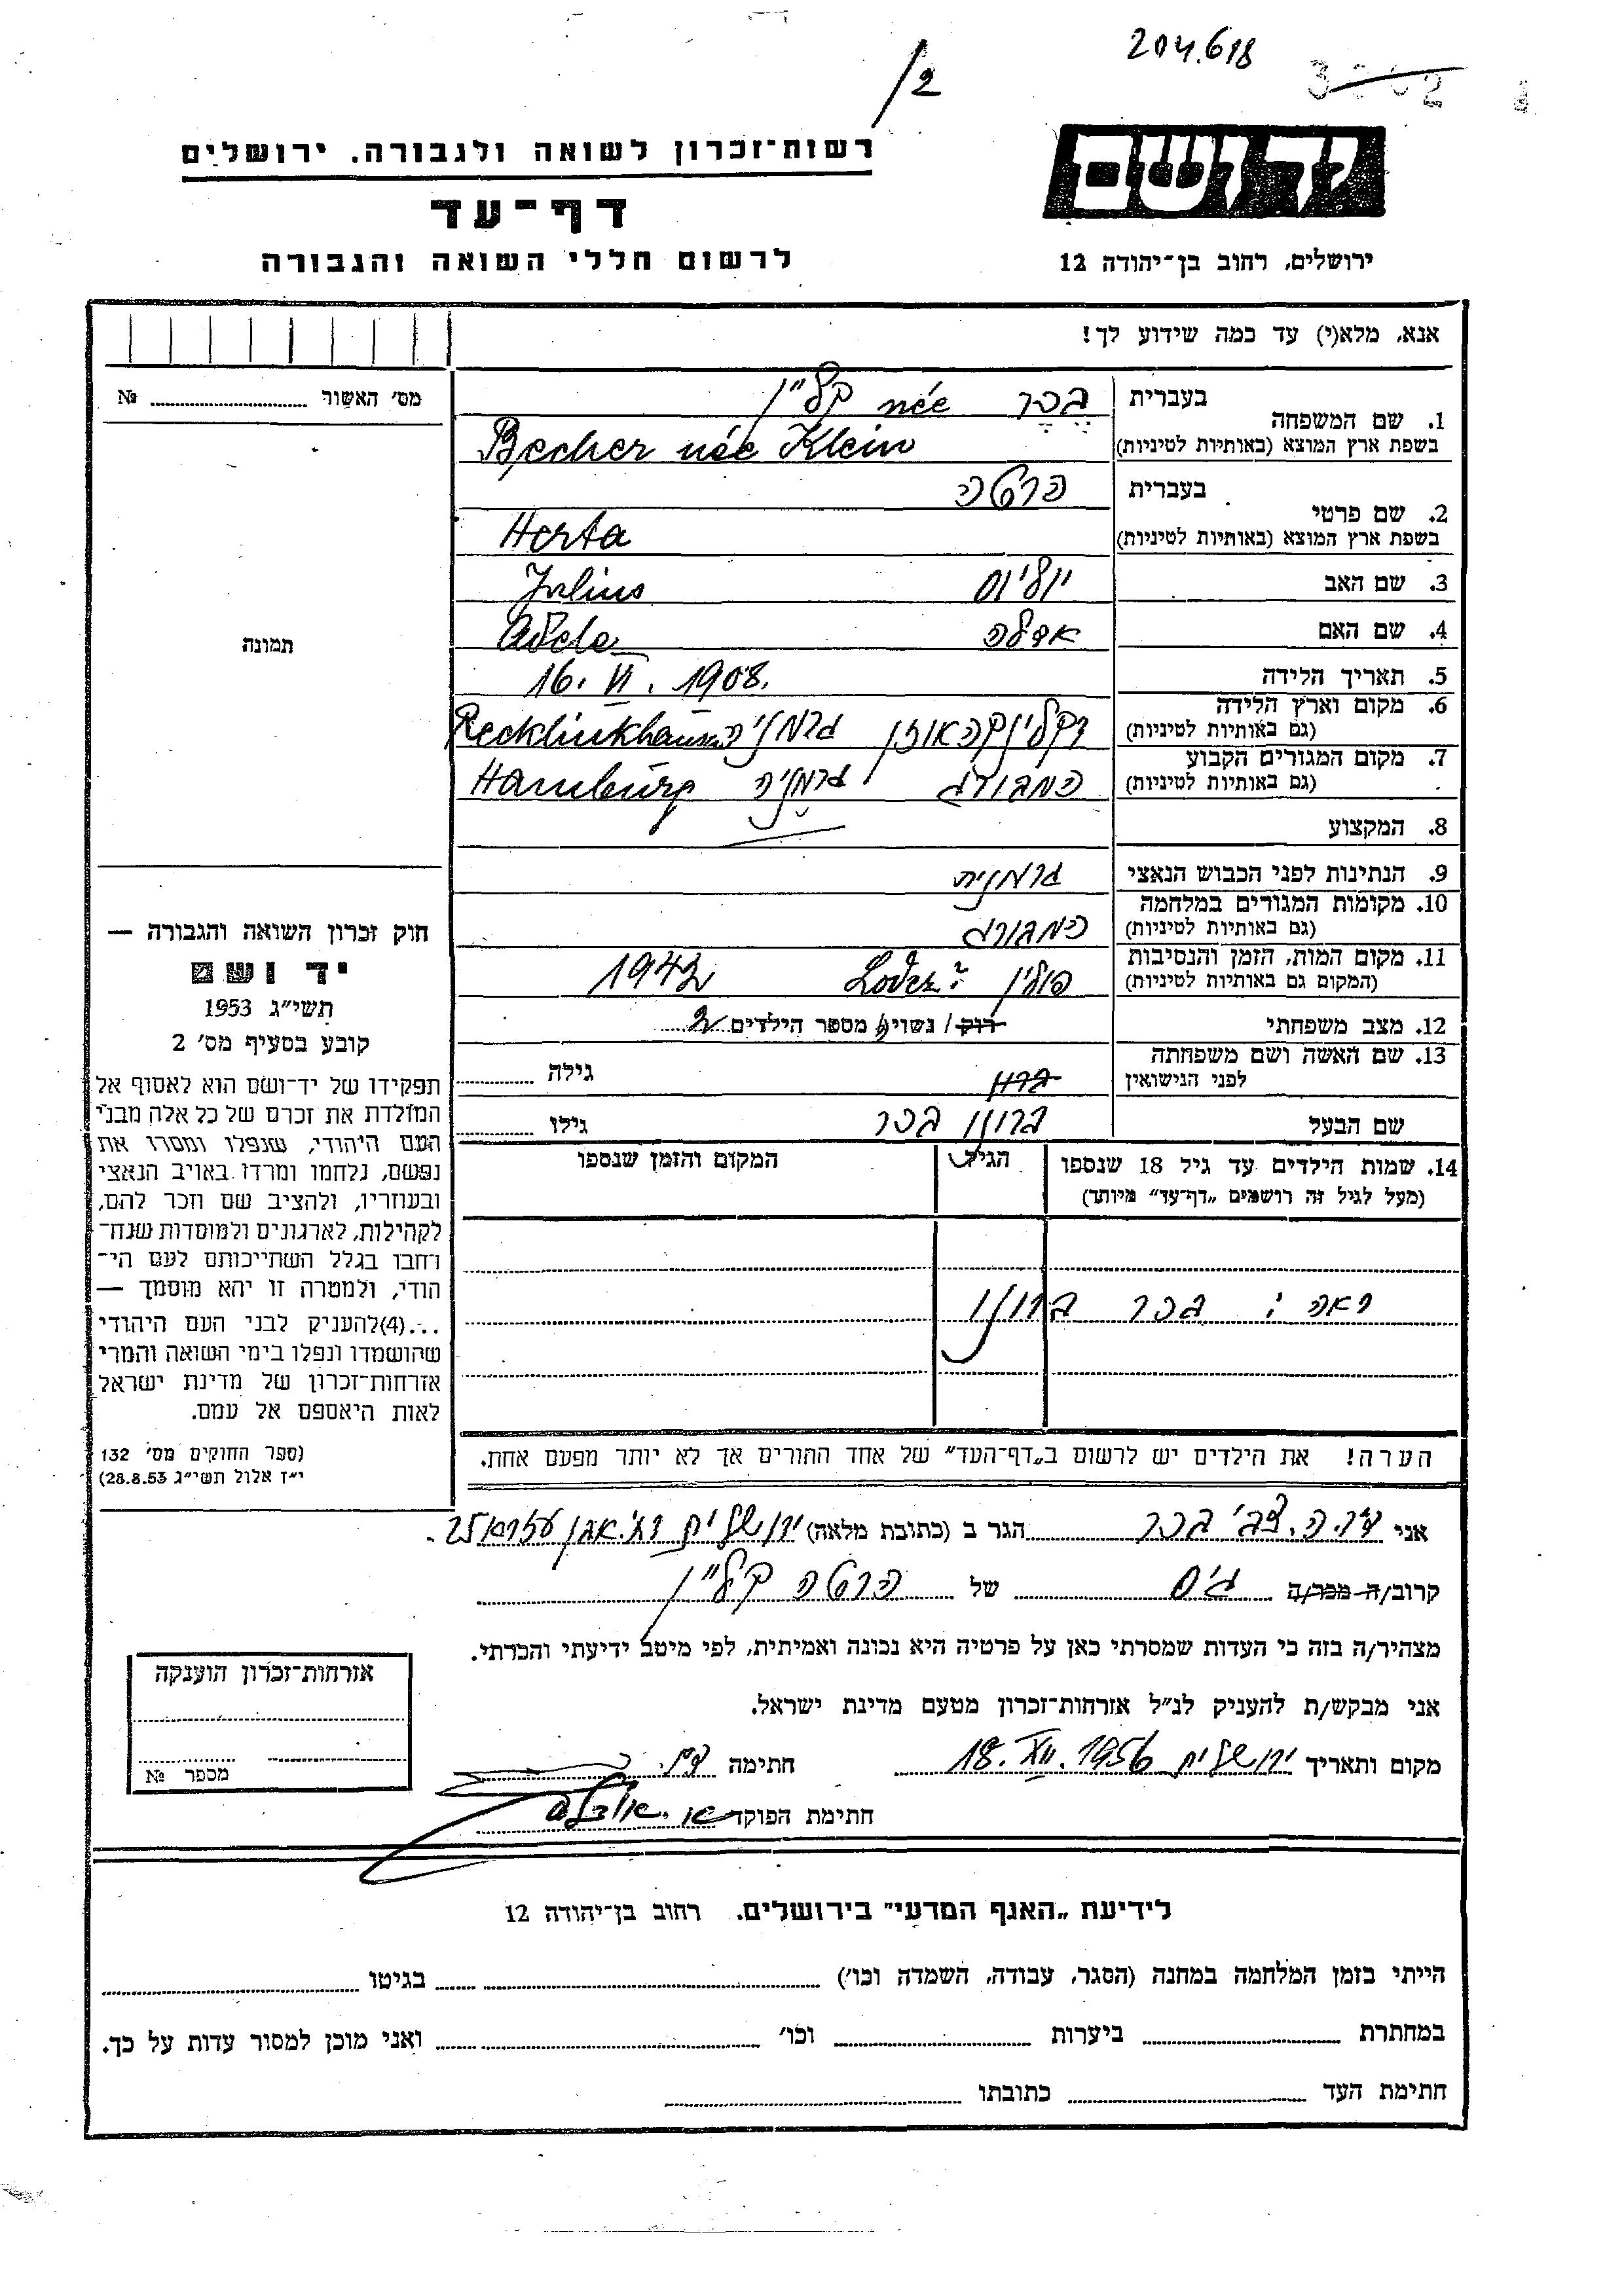 204.618
/2
רשות־זכרון לשואה ולגבורה. ירושלים
יד ושם
דף־עד
לרשום חללי השואה והגבורה
ירושלים, רחוב בן־יהודה 12
אנא, מלא(י) עד כמה שידוע לך!
מס׳ האשור № 
1. שם המשפחה
בעברית בכר née קליין
בשפת ארץ המוצא (באותיות לטיניות) Becher née Klein
2. שם פרטי
בעברית הרטה
בשפת ארץ המוצא (באותיות לטיניות) Herta
3. שם האב יוליוס Julius
4. שם האם אדלה Adele
תמונה
5. תאריך הלידה 16. VI. 1908.
6. מקום וארץ הלידה
(גם באותיות לטיניות) רקלינקהאוזן גרמניה Recklinkhausen
7. מקום המגורים הקבוע
(גם באותיות לטיניות) המבורג גרמניה Hamburg
8. המקצוע
9. הנתינות לפני הכבוש הנאצי גרמנית
10. מקומות המגורים במלחמה
(גם באותיות לטיניות) המבורג
11. מקום המות, הזמן והנסיבות
(המקום גם באותיות לטיניות) פולין Lodez? 1942
12. מצב משפחתי רוק / נשוי/ מספר הילדים 2
13. שם האשה ושם משפחתה
לפני הנישואין גילה
שם הבעל ברונו בכר גילו
14. שמות הילדים עד גיל 18 שנספו הגיל המקום והזמן שנספו
(מעל לגיל זה רושמים „דף־עד״ מיוחד)
ראה: בכר ברונו
הערה! את הילדים יש לרשום ב„דף־העד״ של אחד ההורים אך לא יותר מפעם אחת.
חוק זכרון השואה והגבורה —
יד ושם
תשי״ג 1953
קובע בסעיף מס׳ 2
תפקידו של יד־ושם הוא לאסוף אל
המולדת את זכרם של כל אלה מבני
העם היהודי, שנפלו ומסרו את
נפשם, נלחמו ומרדו באויב הנאצי
ובעוזריו, ולהציב שם וזכר להם,
לקהילות, לארגונים ולמוסדות שנח־
רחבו בגלל השתייכותם לעם הי־
הודי, ולמטרה זו יהא מוסמך —
...(4)להעניק לבני העם היהודי
שהושמדו ונפלו בימי השואה והמרי
אזרחות־זכרון של מדינת ישראל
לאות היאספם אל עמם.
(ספר החוקים מס׳ 132
י״ז אלול תשי״ג 28.8.53)
אני צבי בכר הגר ב (כתובת מלאה) ירושלים רח. אבן עזרא 25
קרוב/ה מכר/ה גיס של הרטה קליין
מצהיר/ה בזה כי העדות שמסרתי כאן על פרטיה היא נכונה ואמיתית, לפי מיטב ידיעתי והכרתי.
אני מבקש/ת להעניק לנ״ל אזרחות־זכרון מטעם מדינת ישראל.
מקום ותאריך ירושלים 18. XII. 1956 חתימה
חתימת הפוקד
אזרחות־זכרון הוענקה
מספר №
לידיעת „האגף המדעי״ בירושלים. רחוב בן־יהודה 12
הייתי בזמן המלחמה במחנה (הסגר, עבודה, השמדה וכו׳) בגיטו
במחתרת ביערות וכו׳ ואני מוכן למסור עדות על כך.
חתימת העד כתובתו